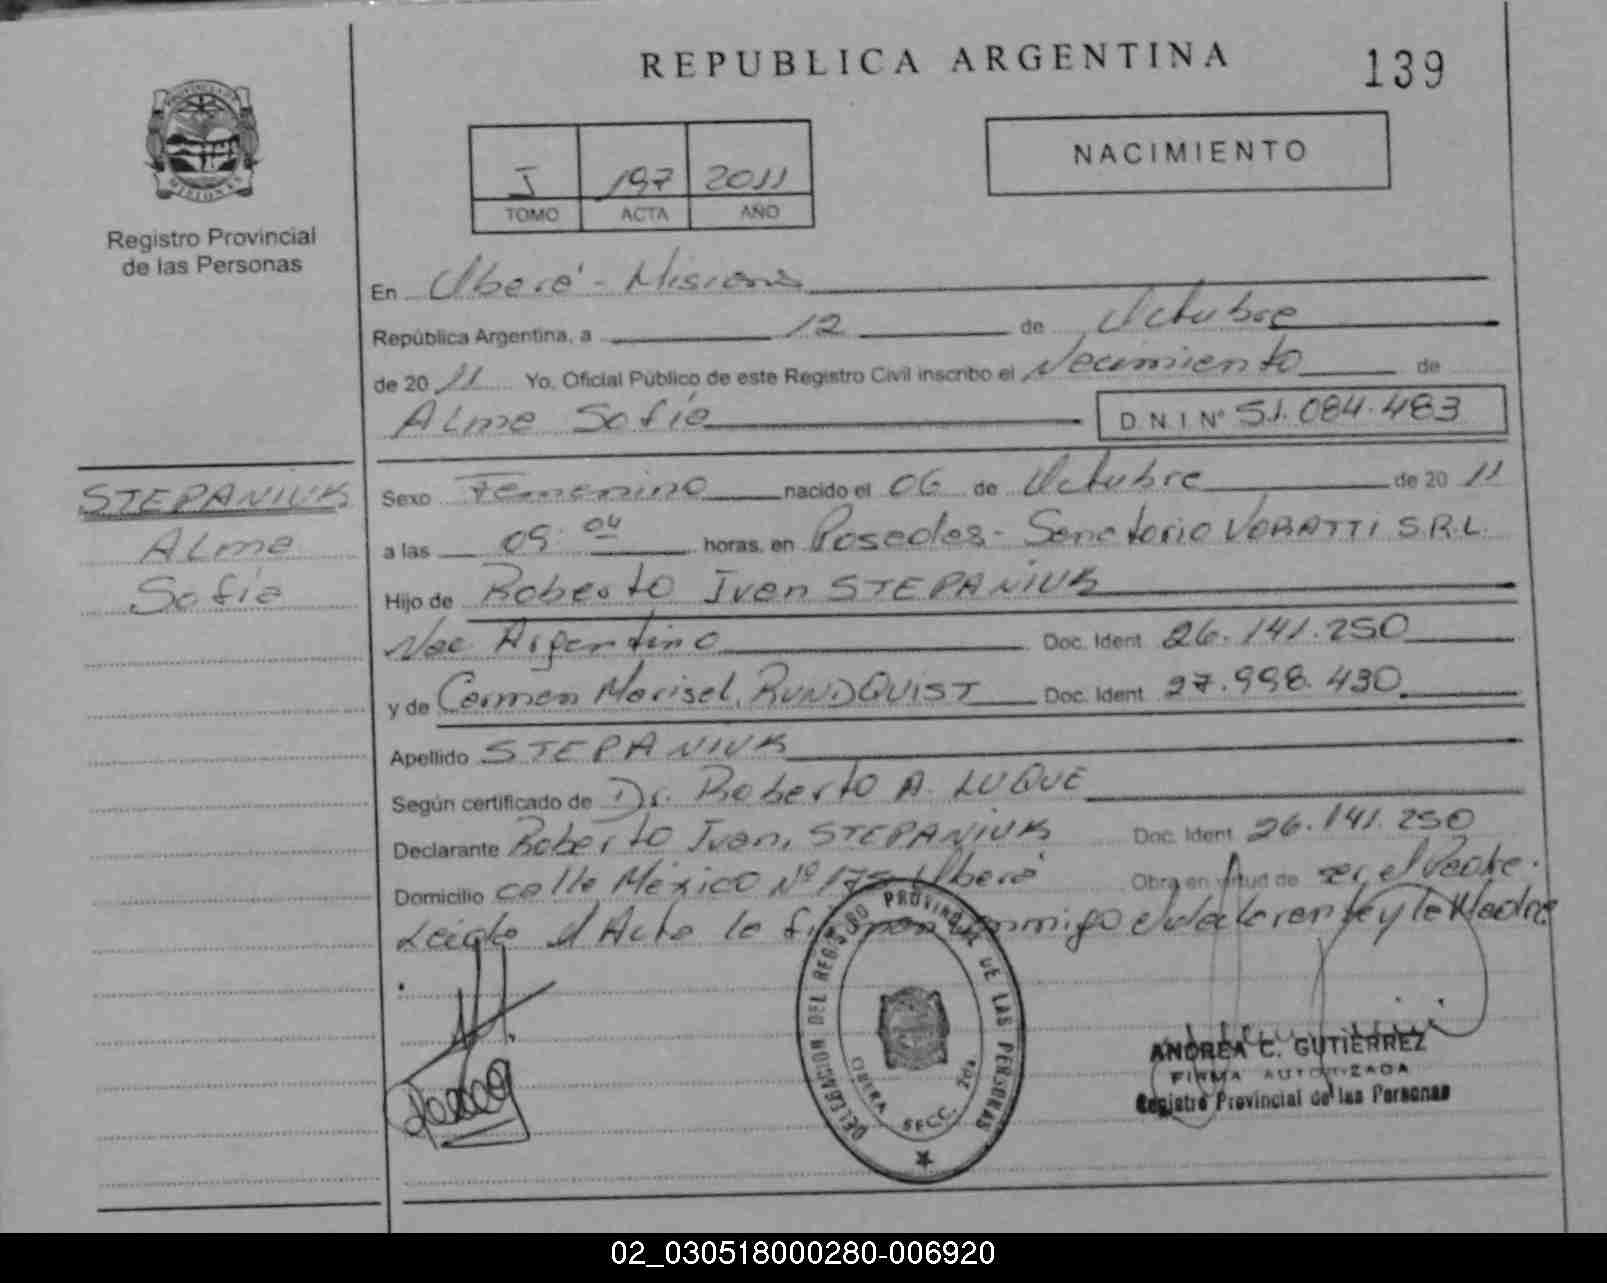 REPUBLICA ARGENTINA
139
PROVINCIA DE
MISIONES
Registro Provincial
de las Personas
I 197 2011
TOMO ACTA AÑO
NACIMIENTO
En Oberá - Misiones
República Argentina, a 12 de Octubre
de 2011 Yo, Oficial Público de este Registro Civil inscribo el Nacimiento de
Alma Sofía D.N.I Nº 51.084.483
STEPANIUK
Alma
Sofía
Sexo Femenino nacido el 06 de Octubre de 2011
a las 09:04 horas, en Posadas - Sanatorio VORATTI S.R.L.
Hijo de Roberto Ivan STEPANIUK
Nac Argentino Doc. Ident. 26.141.250
y de Carmen Marisel, RUNDQUIST Doc. Ident. 27.998.430
Apellido STEPANIUK
Según certificado de Dr. Roberto A. LUQUE
Declarante Roberto Ivan, STEPANIUK Doc. Ident. 26.141.250
Domicilio calle México Nº 175 Oberá Obra en virtud de ser el Padre.
Leída el Acta la firman conmigo el declarante y la Madre
DELEGACION DEL REGISTRO PROVINCIAL DE LAS PERSONAS
OBERA SECC. 2da
ANDREA C. GUTIERREZ
FIRMA AUTORIZADA
Registro Provincial de las Personas
02_030518000280-006920